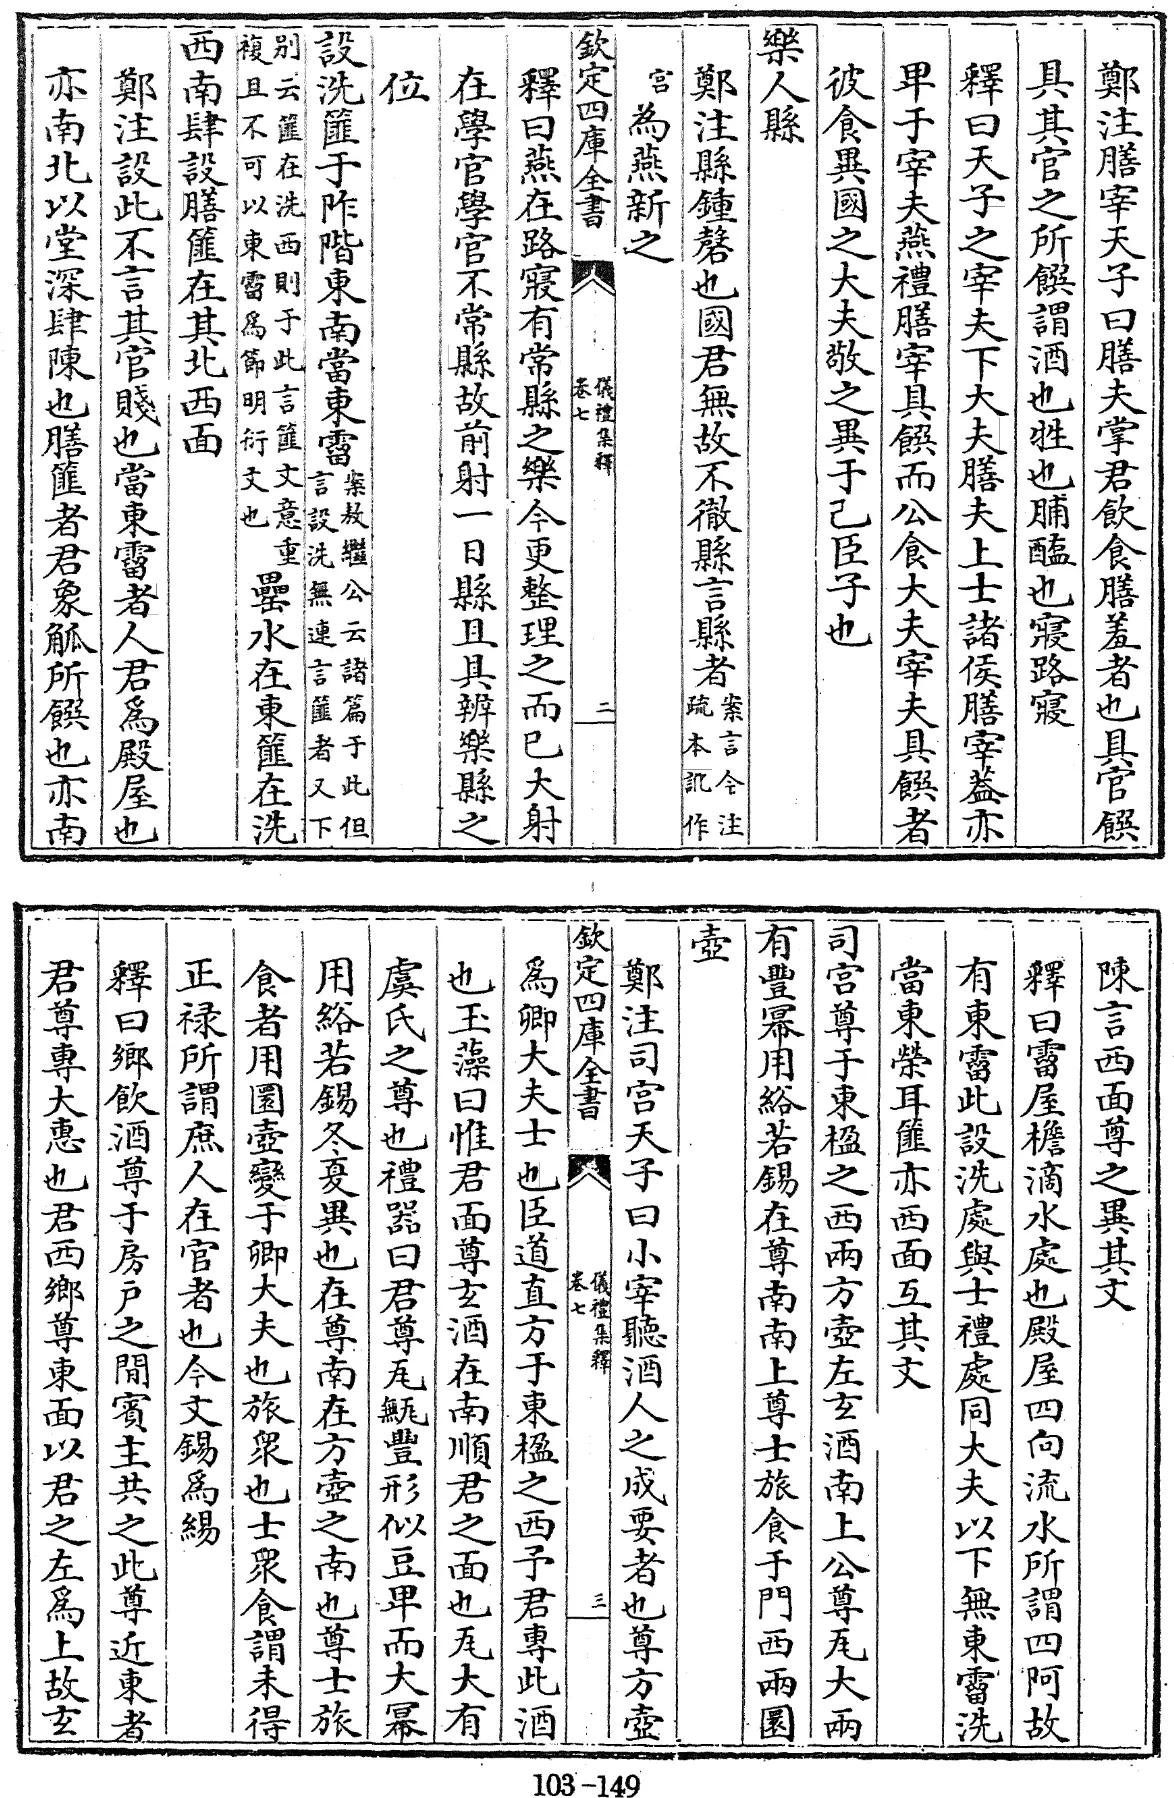 鄭注膳宰天子曰膳夫掌君飲食膳羞者也具官饌
具其官之所饌謂酒也牲也脯醢也寢路寢
釋曰天子之宰夫下大夫膳夫上士諸侯膳宰葢亦
卑于宰夫燕禮膳宰具饌而公食大夫宰夫具饌者
彼食異國之大夫敬之異于己臣子也
樂人縣
鄭注縣鍾磬也國君無故不徹縣言縣者案言今注疏本訛作
宫為燕新之
欽定四庫全書
儀禮集釋
卷七
二
釋曰燕在路寢有常縣之樂今更整理之而已大射
在學宫學官不常縣故前射一日縣且具辨樂縣之
位
設洗篚于阼階東南當東霤案敖繼公云諸篇于此但言設洗無連言篚者又下
别云篚在洗西則于此言篚文意重複且不可以東霤爲節明衍文也罍水在東篚在洗
西南肆設膳篚在其北西面
鄭注設此不言其官賤也當東霤者人君爲殿屋也
亦南北以堂深肆陳也膳篚者君象觚所饌也亦南
陳言西面尊之異其文
釋曰霤屋檐滴水處也殿屋四向流水所謂四阿故
有東霤此設洗處與士禮處同大夫以下無東霤洗
當東榮耳篚亦西面互其文
司宫尊于東楹之西兩方壺左玄酒南上公尊瓦大兩
有豐冪用綌若錫在尊南南上尊士旅食于門西兩圜
壺
鄭注司宫天子曰小宰聽酒人之成要者也尊方壺
欽定四庫全書
儀禮集釋
卷七
三
爲卿大夫士也臣道直方于東楹之西予君專此酒
也玉藻曰惟君面尊玄酒在南順君之面也瓦大有
虞氏之尊也禮器曰君尊瓦甒豐形似豆卑而大冪
用綌若錫冬夏異也在尊南在方壺之南也尊士旅
食者用圜壺變于卿大夫也旅衆也士衆食謂未得
正禄所謂庶人在官者也今文錫爲緆
釋曰鄉飲酒尊于房戸之間賓主共之此尊近東者
君尊專大惠也君西鄉尊東面以君之左爲上故玄
103-149